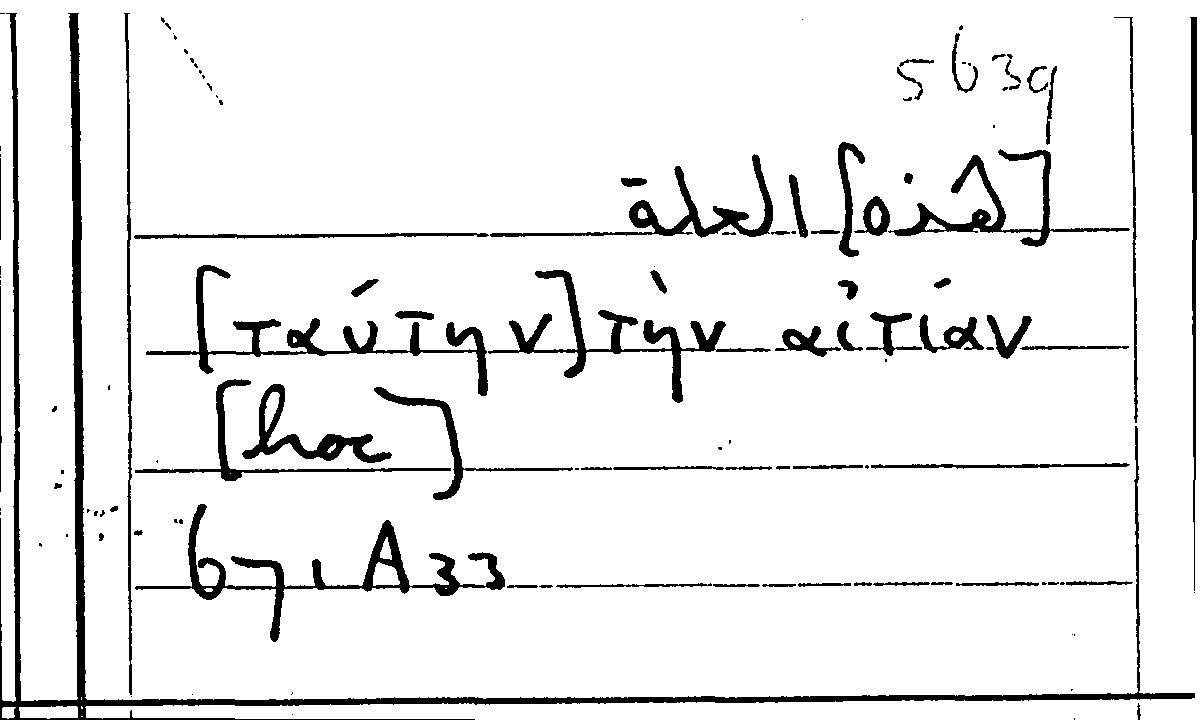 5639
[هذه] العلة
[ταύτην] τὴν αἰτίαν
[hoc]
671 A33